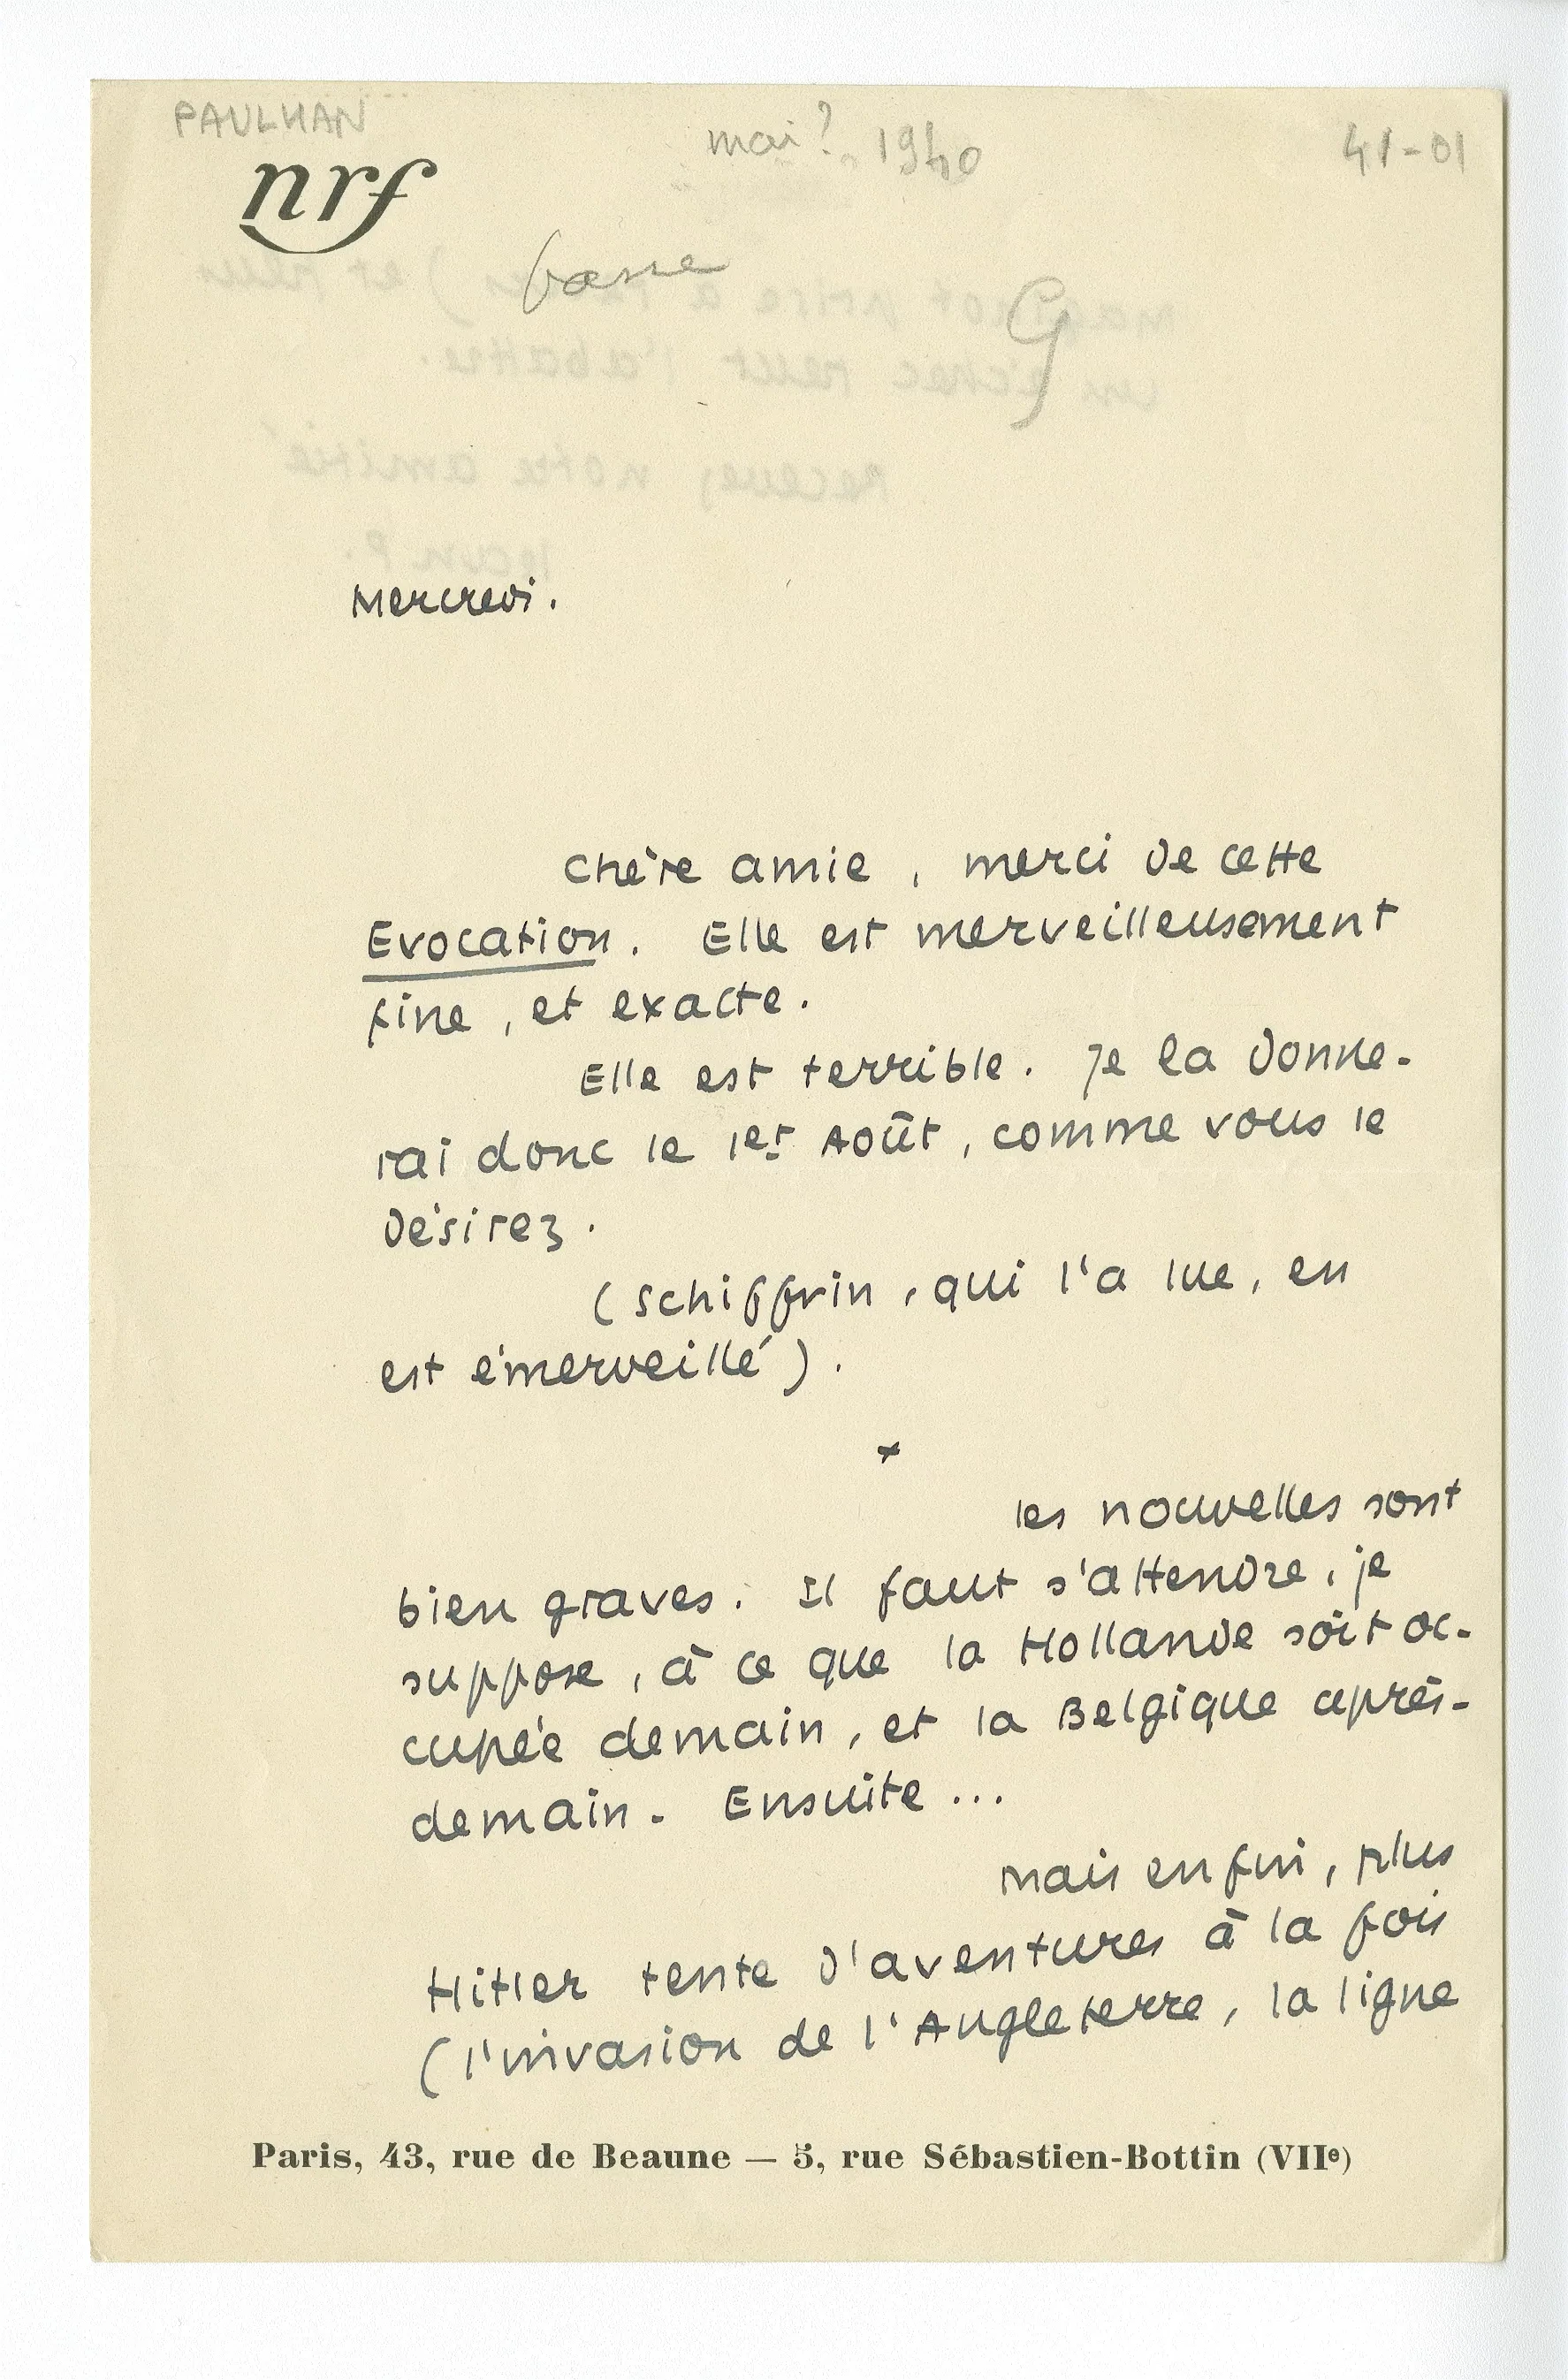 PAULHAN
mai? 1940
41-01
nrf
G
Mercredi.
Chère amie, merci de cette
Evocation. Elle est merveilleusement
fine, et exacte.
Elle est terrible. Je la donne-
rai donc le 1er Août, comme vous le
désirez.
(Schiffrin, qui l'a lue, en
est émerveillé).
*
les nouvelles sont
bien graves. Il faut s'attendre, je
suppose, à ce que la Hollande soit oc-
cupée demain, et la Belgique après-
demain. Ensuite...
Mais enfin, plus
Hitler tente d'aventures à la fois
(l'invasion de l'Angleterre, la ligne
Paris, 43, rue de Beaune — 5, rue Sébastien-Bottin (VIIe)